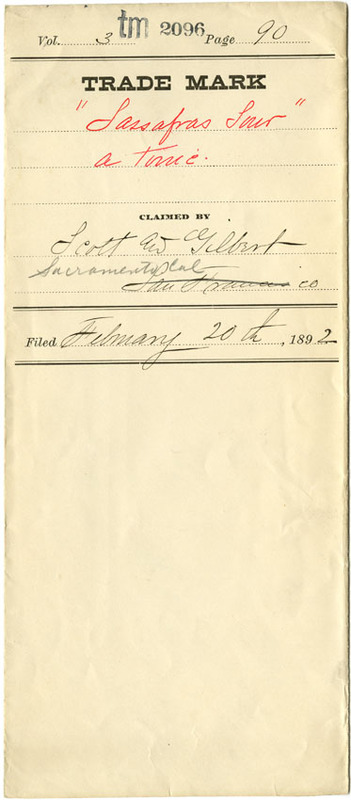 tm 2096
Vol. 3 Page 90
TRADE MARK
"Sassafras Sour"
a Tonic.
CLAIMED BY
Scott & Gilbert
Sacramento Cal
San Francisco
Filed February 20th, 1892